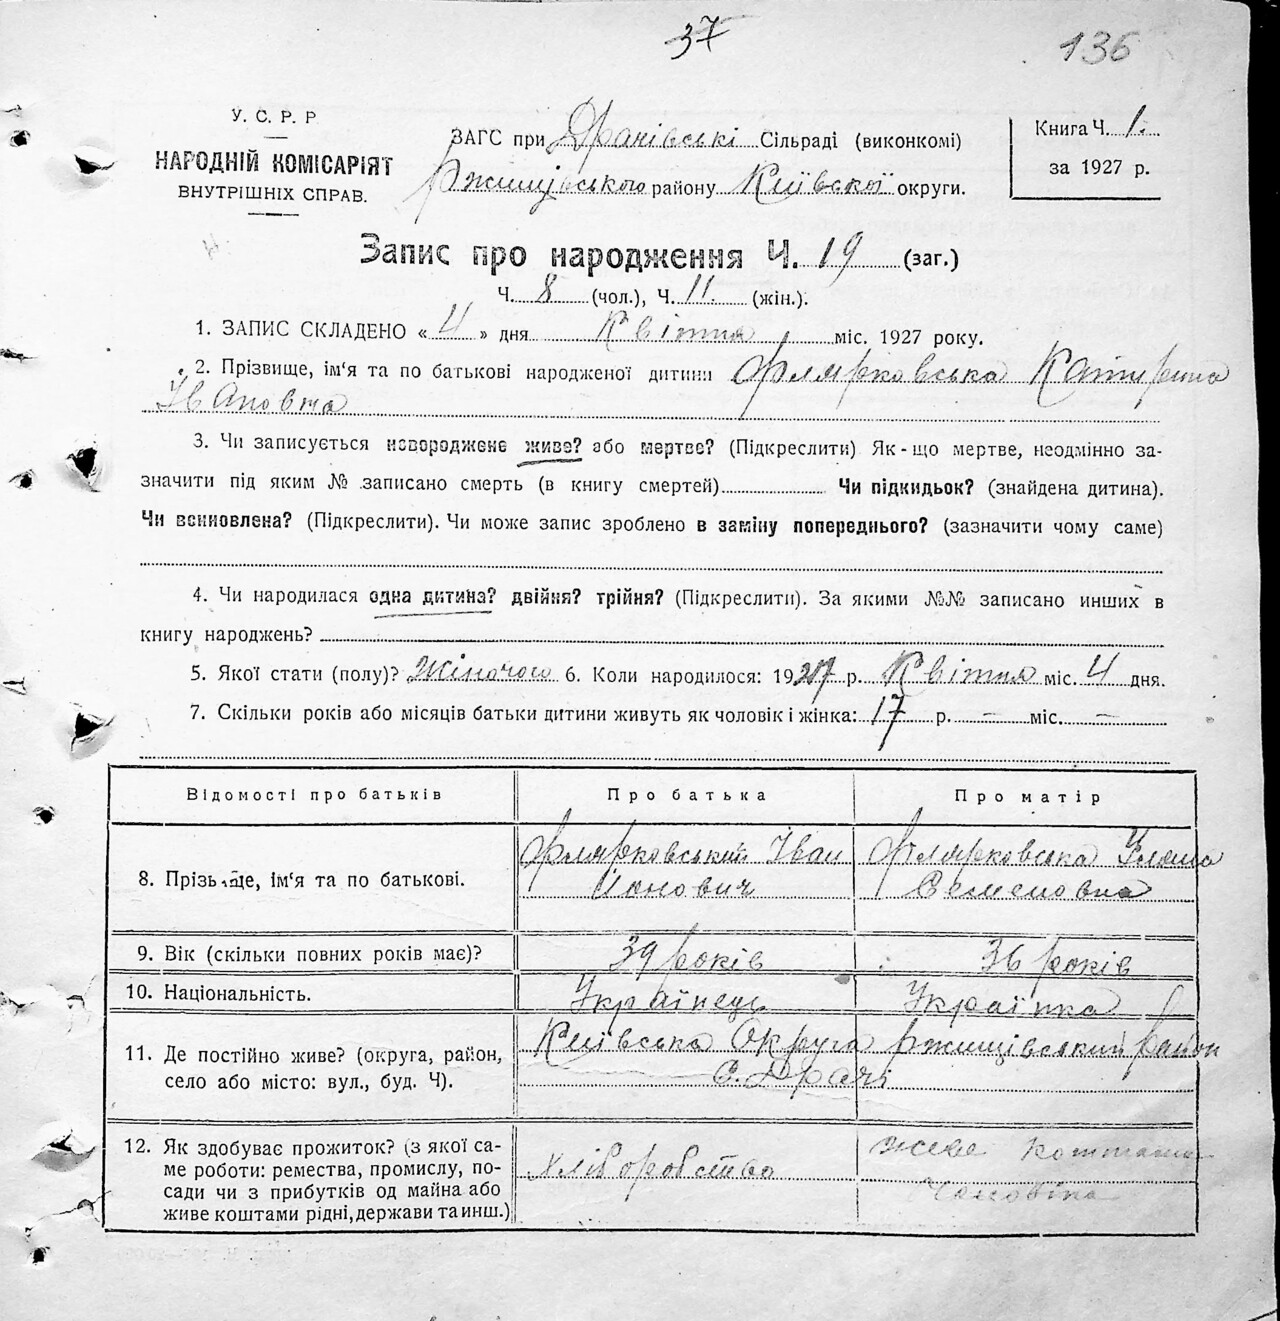 37
136
У. С. Р. Р
НАРОДНІЙ КОМІСАРІЯТ
ВНУТРІШНІХ СПРАВ.
ЗАГС при Драчівські Сільраді (виконкомі)
Ржищівського району Київскої округи.
Книга Ч. 1.
за 1927 р.
Запис про народження Ч. 19 (заг.)
Ч. 8 (чол.), Ч. 11. (жін.).
1. ЗАПИС СКЛАДЕНО « 4 » дня Квітня міс. 1927 року.
2. Прізвище, ім'я та по батькові народженої дитини Флярковська Катирина
Івановна
3. Чи записується новороджене живе? або мертве? (Підкреслити) Як-що мертве, неодмінно за-
значити під яким № записано смерть (в книгу смертей) Чи підкидьок? (знайдена дитина).
Чи всиновлена? (Підкреслити). Чи може запис зроблено в заміну попереднього? (зазначити чому саме)
4. Чи народилася одна дитина? двійня? трійня? (Підкреслити). За якими №№ записано инших в
книгу народжень?
5. Якої стати (полу)? Жіночого 6. Коли народилося: 1927 р. Квітня міс. 4 дня.
7. Скільки років або місяців батьки дитини живуть як чоловік і жінка: 17 р. — міс. —
Відомості про батьків Про батька Про матір
8. Прізвище, ім'я та по батькові. Флярковський Іван Флярковська Уляна
Йонович Семеновна
9. Вік (скільки повних років має)? 39 років 36 років
10. Національність. Українець Українка
11. Де постійно живе? (округа, район, Київська Округа Ржищівський район
село або місто: вул., буд. Ч). с. Драчі
12. Як здобуває прожиток? (з якої са-
ме роботи: ремества, промислу, по-
сади чи з прибутків од майна або
живе коштами рідні, держави та инш.)
хліборобство
живе коштами
Чоловіка